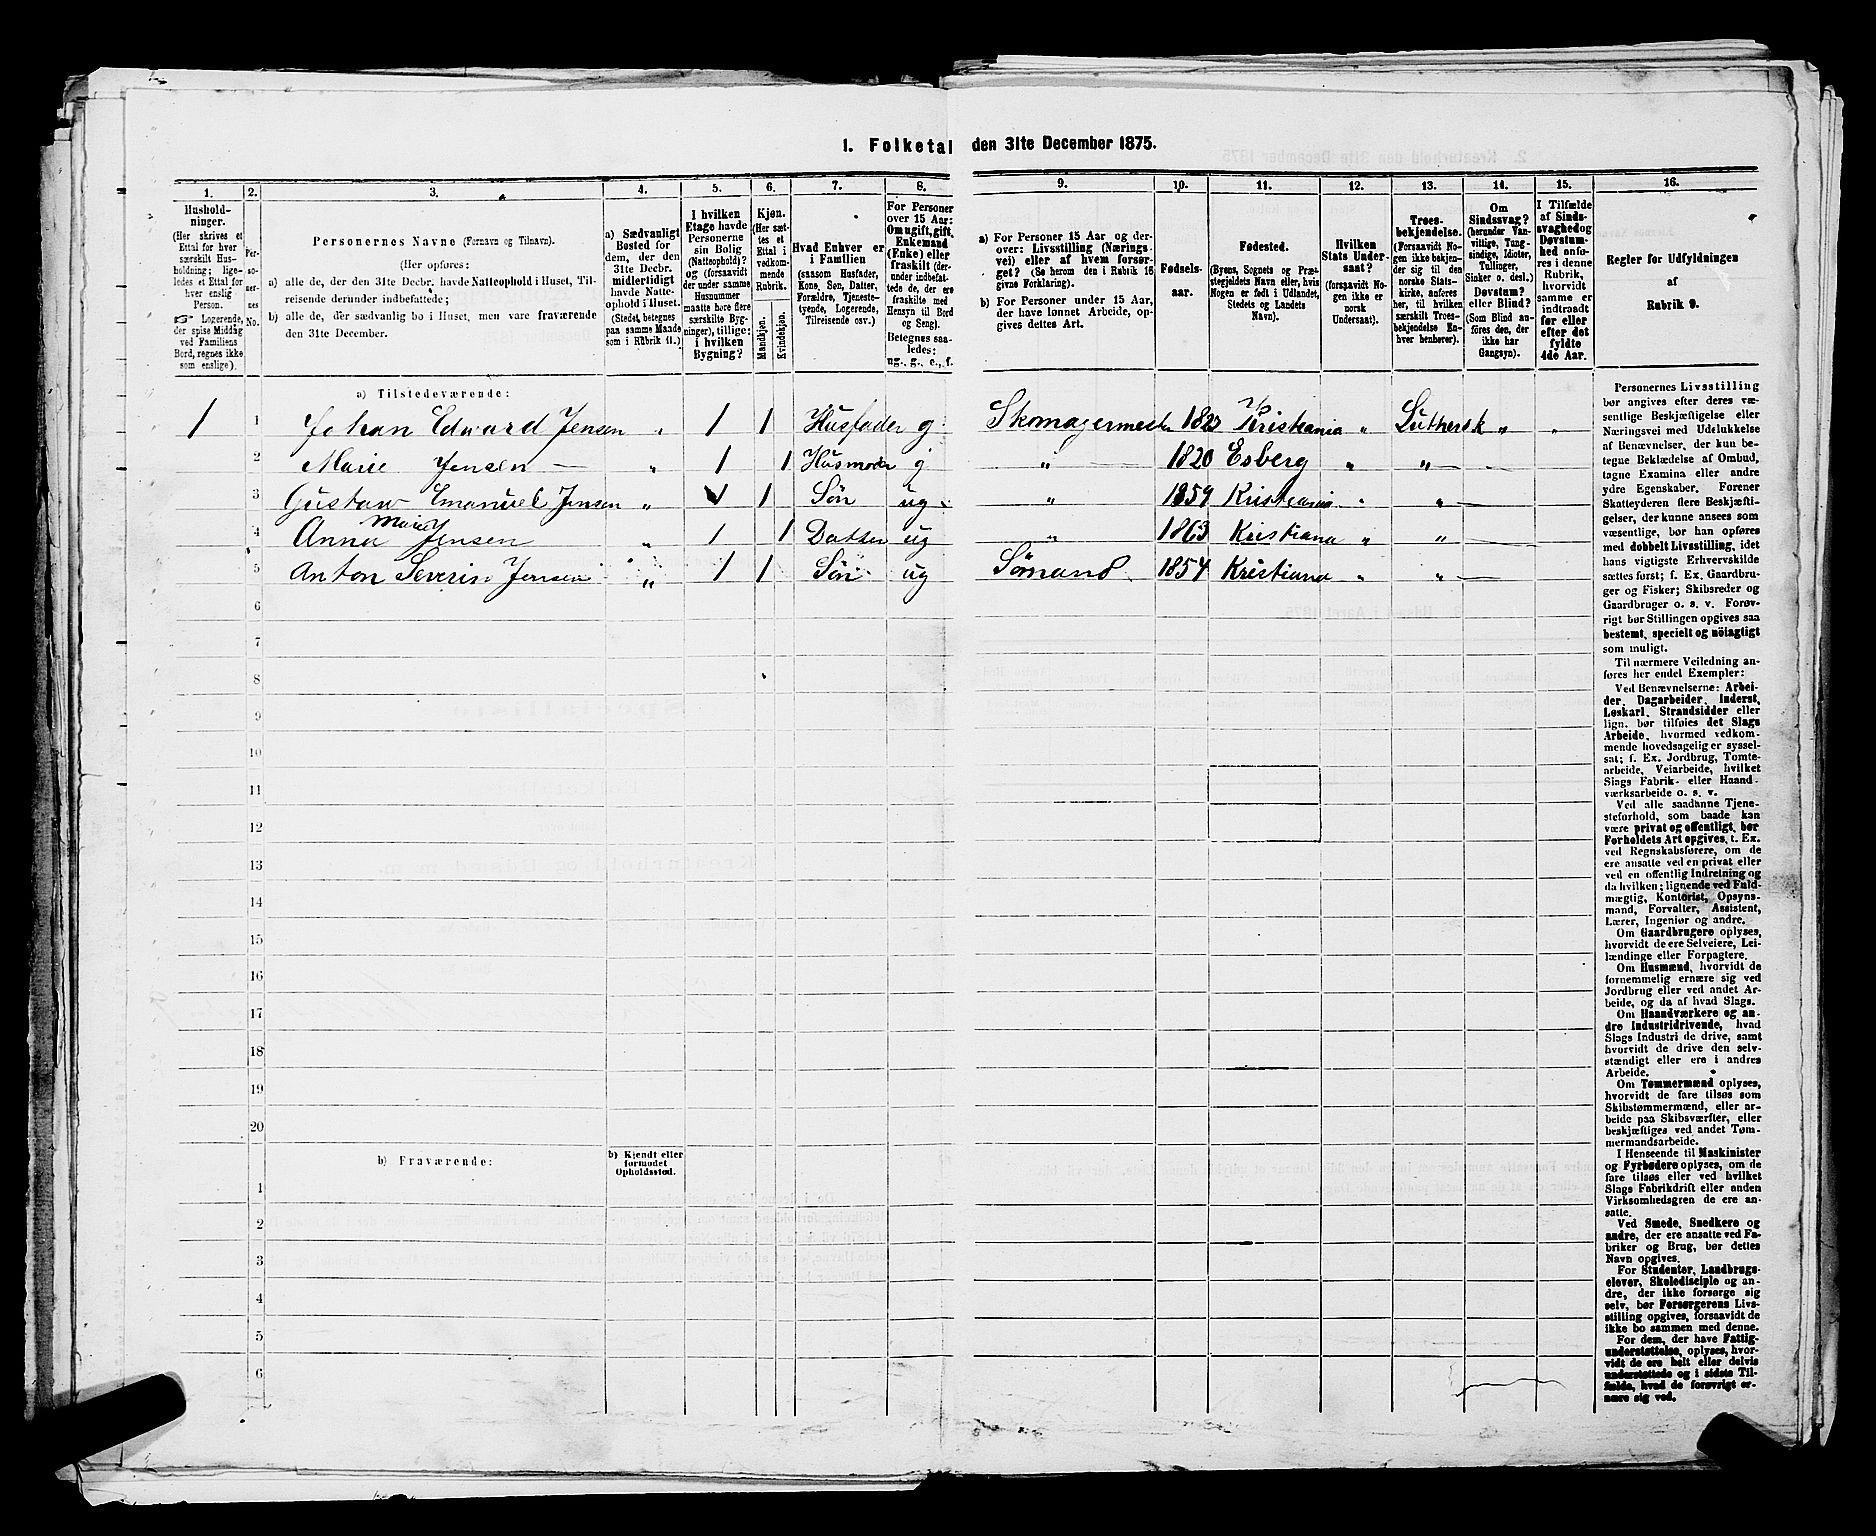 1. Folketal den 31te December 1875.
1. 2. 3. 4. 5. 6. 7. 8. 9. 10. 11. 12. 13. 14. 15. 16.
Hushold-
ninger.
(Her skrives et
Ettal for hver
særskilt Hus-
holdning; lige-
ledes et Ettal
for hver enslig
Person.
☞ Logerende,
der spise Middag
ved Familiens
Bord, regnes ikke
som enslige).
Per-
so-
ner-
nes
No.
Personernes Navne (Fornavn og Tilnavn).
(Her opføres:
a) alle de, der den 31te Decbr. havde Natteophold i Huset, Til-
reisende derunder indbefattede;
b) alle de, der sædvanlig bo i Huset, men vare fraværende
den 31te December.
a) Sædvanligt
Bosted for
dem, der den
31te Decbr.
midlertidigt
havde Natte-
ophold i Huset.
(Stedet, betegnes
paa samme Maade
som i Rubrik 11.)
I hvilken
Etage havde
Personerne
sin Bolig
(Natteophold)?
og (forsaavidt
der under samme
Husnummer
maatte høre flere
særskilte Byg-
ninger), tillige:
i hvilken
Bygning?
Kjøn.
(Her sæt-
tes et
Ettal i
vedkom-
mende
Rubrik.
Mandkjøn.
Kvindekjøn.
Hvad Enhver er
i Familien
(saasom Husfader,
Kone, Søn, Datter,
Forældre, Tjeneste-
tyende, Logerende,
Tilreisende osv.)
For Personer
over 15 Aar:
Om ugift, gift,
Enkemand
(Enke) eller
fraskilt (der-
under indbefat-
tede de, der ere
fraskilte med
Hensyn til Bord
og Seng).
Betegnes saa-
ledes:
ug., g., e., f.
a) For Personer 15 Aar og der-
over: Livsstilling (Nærings-
vei) eller af hvem forsør-
get? (Se herom den i Rubrik 16
givne Forklaring).
b) For Personer under 15 Aar,
der have lønnet Arbeide, op-
gives dettes Art.
Fødsels-
aar.
Fødested.
(Byens, Sognets og Præ-
stegjeldets Navn eller, hvis
Nogen er født i Udlandet,
Stedets og Landets
Navn).
Hvilken
Stats Under-
saat?
(forsaavidt No-
gen ikke er
norsk
Undersaat).
Troes-
bekjendelse.
(Forsaavidt No-
gen ikke bekjen-
der sig til den
norske Stats-
kirke, anføres
her, til hvilken
særskilt Troes-
bekjendelse En-
hver henhører).
Om
Sindssvag?
(herunder Van-
vittige, Tung-
sindige, Idioter,
Tullinger,
Sinker o. desl.)
Døvstum?
eller Blind?
(Som Blind an-
føres den, der
ikke har
Gangsyn).
I Tilfælde
af Sinds-
svaghed og
Døvstum-
hed anfø-
res i denne
Rubrik,
hvorvidt
samme er
indtraadt
før eller
efter det
fyldte
4de Aar.
Regler for Udfyldningen
af
Rubrik 9.
a) Tilstedeværende:
1 1 Johan Edward Jensen „ 1 1 Husfader g Skomagermester 1827 Kristiania „ Luthersk „ „
2 Marie Jensen — „ 1 1 Husmoder g „ 1820 Esberg „ „
3 Gustav Emanuel Jensen „ 1 1 Søn ug. „ 1859 Kristiania „ „
4 Anna Marie Jensen „ 1 1 Datter ug „ 1863 Kristiana „ „
5 Anton Severin Jensen „ 1 1 Søn ug Sømand 1854 Kristiana „ „
6
7
8
9
10
11
12
13
14
15
16
17
18
19
20
b) Fraværende:
b) Kjendt eller
formodet
Opholdssted.
1
2
3
4
5
6
Personernes Livsstilling
bør angives efter deres væ-
sentlige Beskjæftigelse eller
Næringsvei med Udelukkelse
af Benævnelser, der kun be-
tegne Beklædelse af Ombud,
tagne Examina eller andre
ydre Egenskaber. Forener
Skatteyderen flere Beskjæfti-
gelser, der kunne ansees som
væsentlige, bør han opføres
med dobbelt Livsstilling, idet
hans vigtigste Erhvervskilde
sættes først; f. Ex. Gaardbru-
ger og Fisker; Skibsreder og
Gaardbruger o. s. v. Forøv-
rigt bør Stillingen opgives saa
bestemt, specielt og nöiagtigt
som muligt.
Til nærmere Veiledning an-
føres her endel Exempler:
Ved Benævnelserne: Arbei-
der, Dagarbeider, Inderst,
Løskarl, Strandsidder eller
lign. bør tilføies det Slags
Arbeide, hvormed vedkom-
mende hovedsagelig er syssel-
sat; f. Ex. Jordbrug, Tomte-
arbeide, Veiarbeide, hvilket
Slags Fabrik- eller Haand-
værksarbeide o. s. v.
Ved alle saadanne Tjene-
steforhold, som baade kan
være privat og offentligt, bør
Forholdets Art opgives, t. Ex.
ved Regnskabsførere, om de
ere ansatte ved en privat eller
ved en offentlig Indretning og
da hvilken; lignende ved Fuld-
mægtig, Kontorist, Opsyns-
mand, Forvalter, Assistent,
Lærer, Ingeniør og andre.
Om Gaardbrugere oplyses,
hvorvidt de ere Selveiere, Lei-
lændinge eller Forpagtere.
Om Husmænd, hvorvidt de
fornemmelig ernære sig ved
Jordbrug eller ved andet Ar-
beide, og da af hvad Slags.
Om Haandværkere og an-
dre Industridrivende, hvad
Slags Industri de drive, samt
hvorvidt de drive den selv-
stændigt eller ere i andres
Arbeide.
Om Tømmermænd oplyses,
hvorvidt de fare tilsøs som
Skibstømmermænd, eller ar-
beide paa Skibsværfter, eller
beskjæftiges ved andet Tøm-
mermandsarbeide.
I Henseende til Maskinister
og Fyrbødere oplyses, om de
fare tilsøs eller ved hvilket
Slags Fabrikdrift eller anden
Virksomhedsgren de ere an-
satte.
Ved Smede, Snedkere og
andre, der ere ansatte ved Fa-
briker og Brug, bør dettes
Navn opgives.
For Studenter, Landbrugs-
elever, Skoledisciple og an-
dre, der ikke forsørge sig
selv, bør Forsørgerens Livs-
stilling opgives, forsaavidt de
ikke bo sammen med denne.
For dem, der have Fattig-
understøttelse, oplyses, hvor-
vidt de ere helt eller delvis
understøttede og i sidste Til-
fælde, hvad de forøvrigt er-
nære sig ved.